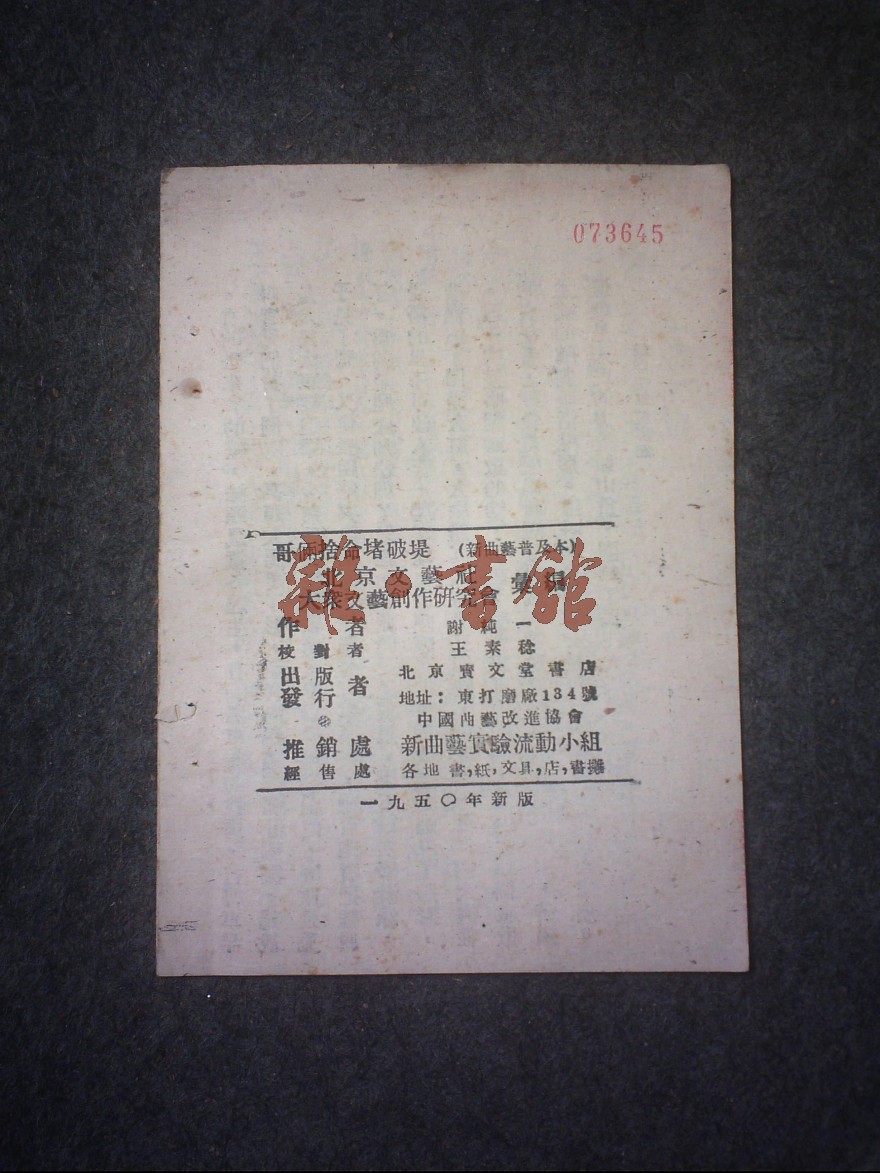 073645
哥倆捨命堵破堤 (新曲藝普及本)
北京文藝社
大衆文藝創作研究會 彙編
作者 謝純一
校對者 王素稔
出版
發行 者 北京寶文堂書店
地址：東打磨廠134號
中國曲藝改進協會
推銷處 新曲藝實驗流動小組
經售處 各地書，紙，文具，店，書攤
一九五〇年新版
雜·書館